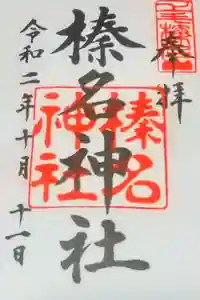 奉拝
榛名神社
榛名
神社
令和二年十月十一日